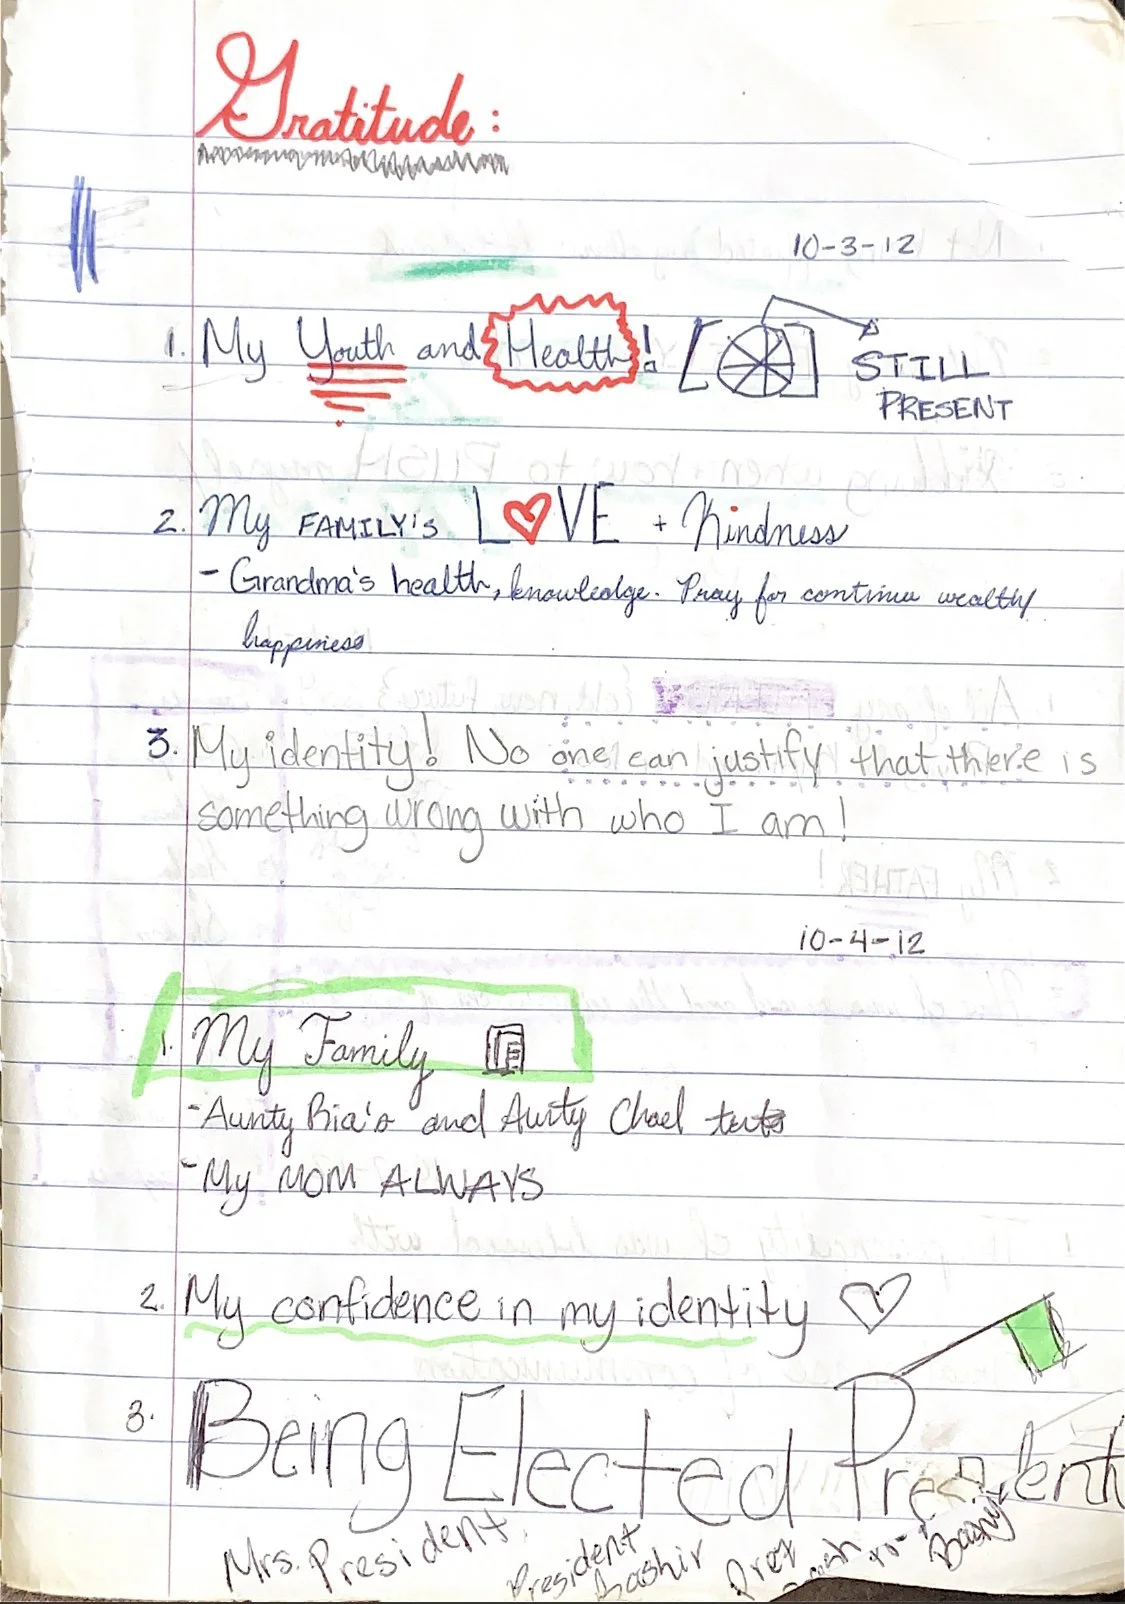 Gratitude:
10-3-12
1. My Youth and Health! [ ] STILL
PRESENT
2. My FAMILY'S LOVE + Kindness
- Grandma's health, knowledge. Pray for continu wealth/
happiness
3. My identity! No one can justify that there is
something wrong with who I am!
10-4-12
1. My Family
- Aunty Ria's and Aunty Chael
- My MOM ALWAYS
2. My confidence in my identity
3. Being Elected President
Mrs. President
President
Bashir